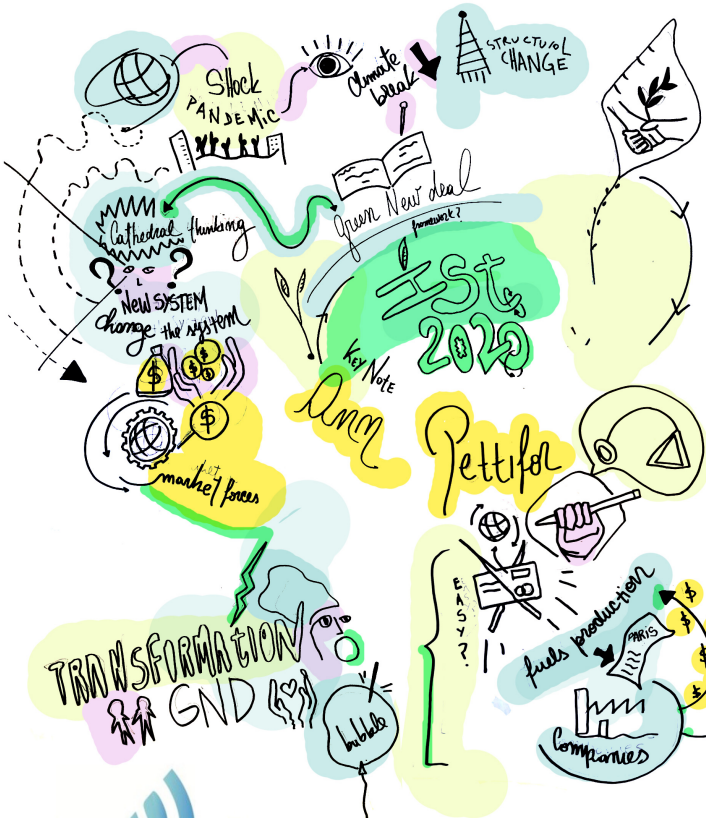 SHOCK
PANDEMIC
climate
break
STRUCTURAL
CHANGE
Cathedral thinking
Green New deal
framework?
? ?
NEW SYSTEM
change the system
IST.
2020
KEY NOTE
Ann
Pettifor
$ $ $ $
$
market forces
EASY?
fuels production
PARIS
$
$
$
$
Companies
TRANSFORMATION
GND
bubble